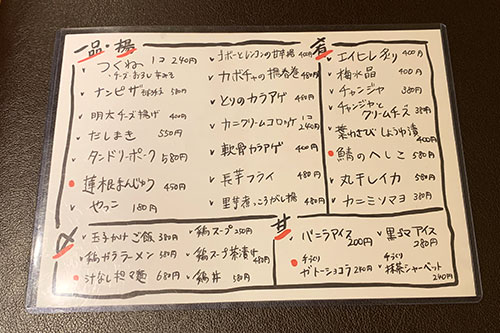 一品・揚
つくね 1コ 240円
・チーズ・おろし・
ナンピザ 580円
明太チーズ揚げ 400円
だしまき 550円
タンドリーポーク 580円
蓮根まんじゅう 450円
やっこ 180円
ゴボーとレンコンの甘辛揚 400円
カボチャの揚春巻 450円
とりのカラアゲ 450円
カニクリームコロッケ 1コ 240円
軟骨カラアゲ 400円
長芋フライ 480円
里芋煮っころがし揚 480円
肴
エイヒレ炙り 400円
梅水晶 400円
チャンジャ 380円
チャンジャとクリームチーズ 380円
葉わさびしょうゆ漬 400円
鯖のへしこ 580円
丸干しイカ 580円
カニミソマヨ 380円
〆
玉子かけご飯 380円
鶏ガララーメン 580円
汁なし担々麺 680円
鶏スープ 350円
鶏スープ茶漬け 480円
鶏丼 580円
甘
バニラアイス 200円
手づくりガトーショコラ 240円
黒ゴマアイス 280円
手づくり抹茶シャーベット 240円